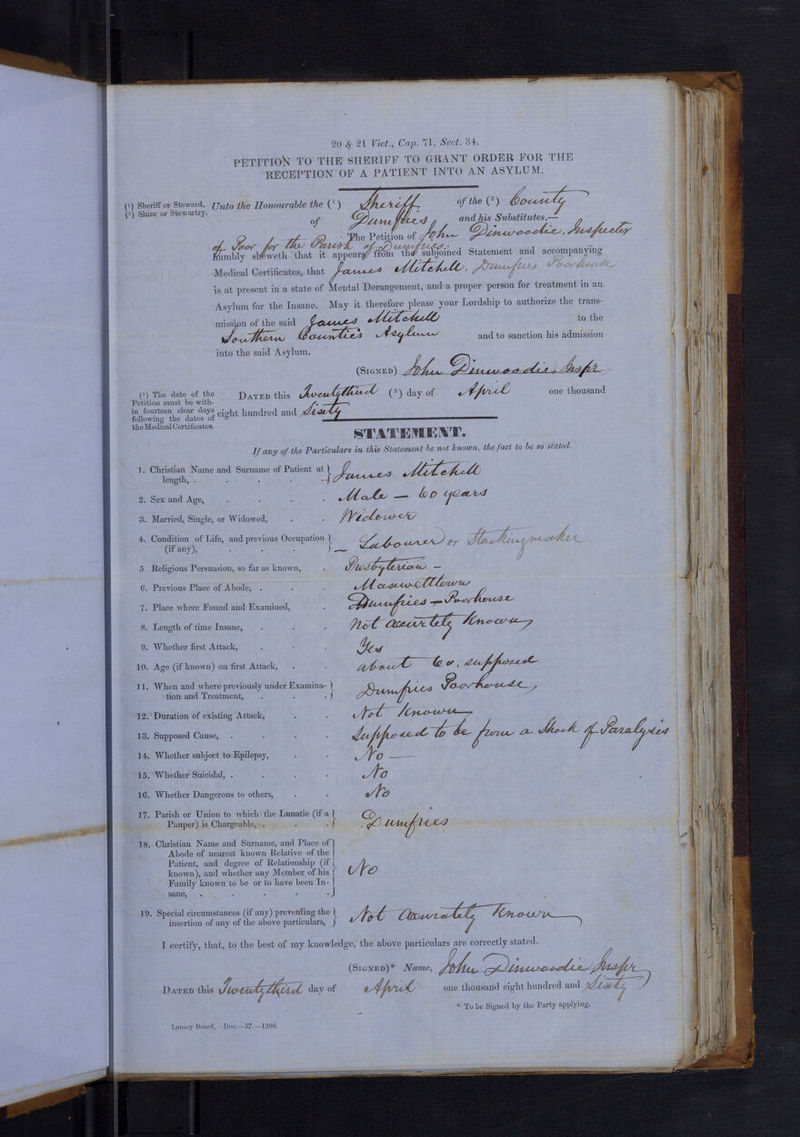 20 & 21 Vict., Cap. 71, Sect. 34.
PETITION TO THE SHERIFF TO GRANT ORDER FOR THE
RECEPTION OF A PATIENT INTO AN ASYLUM.
(¹) Sheriff or Steward.
(²) Shire or Stewartry.
Unto the Honourable the (¹) Sheriff of the (²) County
of Dumfries and his Substitutes,—
The Petition of John Dinwoodie, Inspector
of Poor for the Parish of Dumfries
humbly sheweth that it appears from the subjoined Statement and accompanying
Medical Certificates, that James Mitchell, Dumfries Poorhouse
is at present in a state of Mental Derangement, and a proper person for treatment in an
Asylum for the Insane. May it therefore please your Lordship to authorize the trans-
mission of the said James Mitchell to the
Southern Counties Asylum and to sanction his admission
into the said Asylum.
(SIGNED) John Dinwoodie, Inspr
(³) The date of the
Petition must be with-
in fourteen clear days
following the dates of
the Medical Certificates.
DATED this Twentythird (³) day of April one thousand
eight hundred and Sixty
STATEMENT.
If any of the Particulars in this Statement be not known, the fact to be so stated.
1. Christian Name and Surname of Patient at
length, . . . . . James Mitchell
2. Sex and Age, . . . . Male — 60 years
3. Married, Single, or Widowed, . . Widower
4. Condition of Life, and previous Occupation
(if any), . . . — Labourer or Stockingmaker
5. Religious Persuasion, so far as known, . Presbyterian —
6. Previous Place of Abode, . . . Maxwelltown
7. Place where Found and Examined, . Dumfries — Poorhouse
8. Length of time Insane, . . . Not accurtely known
9. Whether first Attack, . . . Yes
10. Age (if known) on first Attack, . . about 60, supposed
11. When and where previously under Examina-
tion and Treatment, . . . Dumfries Poorhouse
12. Duration of existing Attack, . . Not known
13. Supposed Cause, . . . . Supposed to be from a Shock of Paralysis
14. Whether subject to Epilepsy, . . No —
15. Whether Suicidal, . . . . No
16. Whether Dangerous to others, . . No
17. Parish or Union to which the Lunatic (if a
Pauper) is Chargeable, . . . Dumfries
18. Christian Name and Surname, and Place of
Abode of nearest known Relative of the
Patient, and degree of Relationship (if
known), and whether any Member of his
Family known to be or to have been In-
sane, . . . . . No
19. Special circumstances (if any) preventing the
insertion of any of the above particulars, Not Accurately Known
I certify, that, to the best of my knowledge, the above particulars are correctly stated.
(SIGNED)* Name, John Dinwoodie Inspr
DATED this Twentythird day of April one thousand eight hundred and Sixty
* To be Signed by the Party applying.
Lunacy Board,—Doc.—57.—1200.